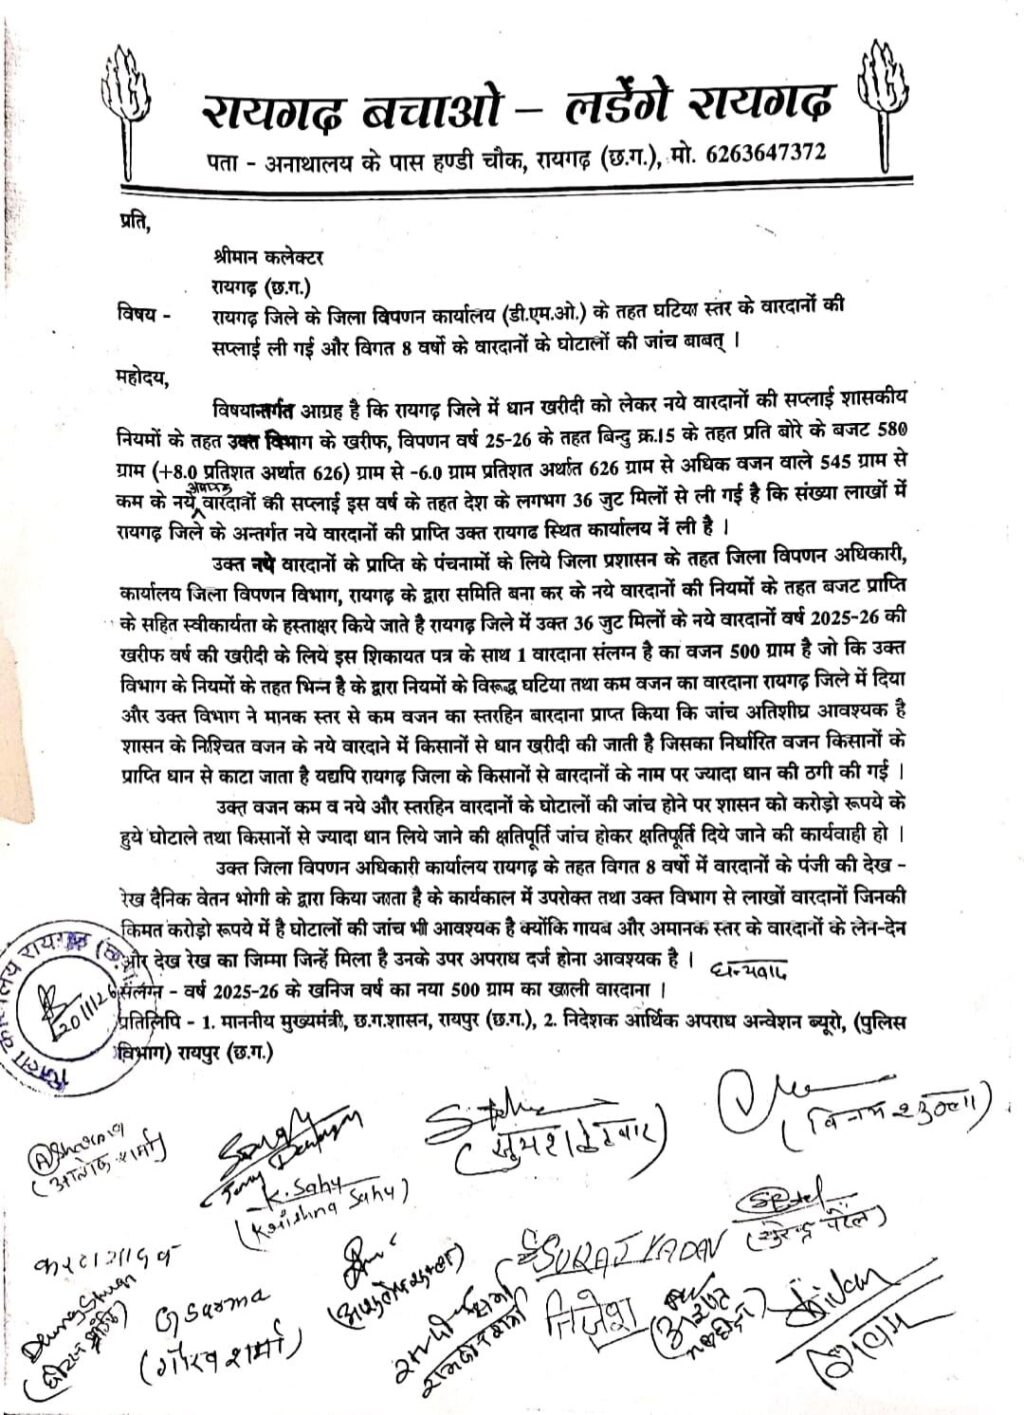 रायगढ़ बचाओ – लर्डेंगे रायगढ़
पता - अनाथालय के पास हण्डी चौक, रायगढ़ (छ.ग.), मो. 6263647372
प्रति,
श्रीमान कलेक्टर
रायगढ़ (छ.ग.)
विषय - रायगढ़ जिले के जिला विपणन कार्यालय (डी.एम.ओ.) के तहत घटिया स्तर के वारदानों की
सप्लाई ली गई और विगत 8 वर्षो के वारदानों के घोटालों की जांच बाबत् ।
महोदय,
विषयान्तर्गत आग्रह है कि रायगढ़ जिले में धान खरीदी को लेकर नये वारदानों की सप्लाई शासकीय
नियमों के तहत उक्त विभाग के खरीफ, विपणन वर्ष 25-26 के तहत बिन्दु क्र.15 के तहत प्रति बोरे के बजट 580
ग्राम (+8.0 प्रतिशत अर्थात 626) ग्राम से -6.0 ग्राम प्रतिशत अर्थात 626 ग्राम से अधिक वजन वाले 545 ग्राम से
कम के नये वारदानों की सप्लाई इस वर्ष के तहत देश के लगभग 36 जुट मिलों से ली गई है कि संख्या लाखों में
रायगढ़ जिले के अन्तर्गत नये वारदानों की प्राप्ति उक्त रायगढ स्थित कार्यालय नें ली है ।
उक्त नये वारदानों के प्राप्ति के पंचनामों के लिये जिला प्रशासन के तहत जिला विपणन अधिकारी,
कार्यालय जिला विपणन विभाग, रायगढ़ के द्वारा समिति बना कर के नये वारदानों की नियमों के तहत बजट प्राप्ति
के सहित स्वीकार्यता के हस्ताक्षर किये जाते है रायगढ़ जिले में उक्त 36 जुट मिलों के नये वारदानों वर्ष 2025-26 की
खरीफ वर्ष की खरीदी के लिये इस शिकायत पत्र के साथ 1 वारदाना संलग्न है का वजन 500 ग्राम है जो कि उक्त
विभाग के नियमों के तहत भिन्न है के द्वारा नियमों के विरूद्ध घटिया तथा कम वजन का वारदाना रायगढ़ जिले में दिया
और उक्त विभाग ने मानक स्तर से कम वजन का स्तरहिन बारदाना प्राप्त किया कि जांच अतिशीघ्र आवश्यक है
शासन के निश्चित वजन के नये वारदाने में किसानों से धान खरीदी की जाती है जिसका निर्धारित वजन किसानों के
प्राप्ति धान से काटा जाता है यद्यपि रायगढ़ जिला के किसानों से बारदानों के नाम पर ज्यादा धान की ठगी की गई ।
उक्त वजन कम व नये और स्तरहिन वारदानों के घोटालों की जांच होने पर शासन को करोड़ो रूपये के
हुये घोटाले तथा किसानों से ज्यादा धान लिये जाने की क्षतिपूर्ति जांच होकर क्षतिपूर्ति दिये जाने की कार्यवाही हो ।
उक्त जिला विपणन अधिकारी कार्यालय रायगढ़ के तहत विगत 8 वर्षो में वारदानों के पंजी की देख -
रेख दैनिक वेतन भोगी के द्वारा किया जाता है के कार्यकाल में उपरोक्त तथा उक्त विभाग से लाखों वारदानों जिनकी
किमत करोड़ो रूपये में है घोटालों की जांच भी आवश्यक है क्योंकि गायब और अमानक स्तर के वारदानों के लेन-देन
और देख रेख का जिम्मा जिन्हें मिला है उनके उपर अपराध दर्ज होना आवश्यक है । धन्यवाद
संलग्न - वर्ष 2025-26 के खनिज वर्ष का नया 500 ग्राम का खाली वारदाना ।
प्रतिलिपि - 1. माननीय मुख्यमंत्री, छ.ग.शासन, रायपुर (छ.ग.), 2. निदेशक आर्थिक अपराध अन्वेशन ब्यूरो, (पुलिस
विभाग) रायपुर (छ.ग.)
K. Sahu
(Krishna Sahu)
SURAJ YADAV
G Sarma
(गौरव शर्मा)